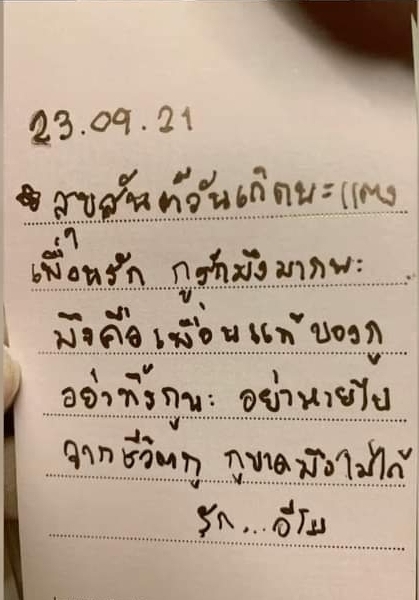 23.09.21
สุขสันต์วันเกิดนะแตง
เพื่อนรัก กูรักมึงมากนะ
มึงคือเพื่อนแท้ของกู
อย่าทิ้งกูนะ อย่าหายไป
จากชีวิตกู กูขาดมึงไม่ได้
รัก...อีโม